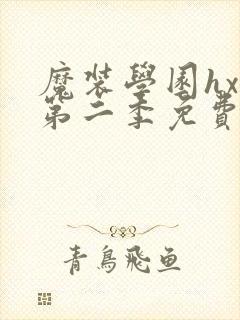 魔裝學園hx
第二季免費
青鳥飛魚